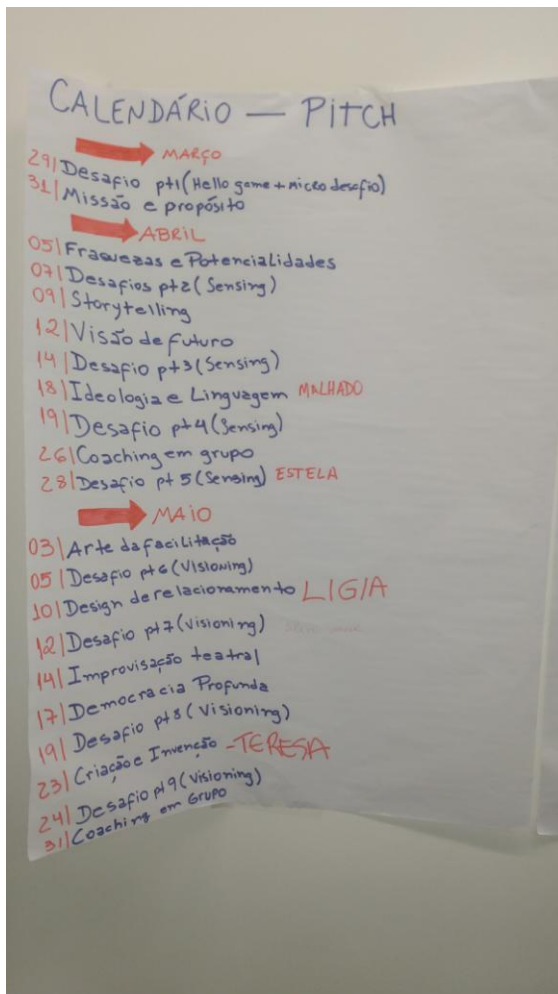 CALENDÁRIO — PITCH
MARÇO
29| Desafio pt1 (Hello game + micro desafio)
31| Missão e propósito
ABRIL
05| Fraquezas e Potencialidades
07| Desafios pt2 (Sensing)
09| Storytelling
12| Visão de futuro
14| Desafio pt3 (Sensing)
18| Ideologia e Linguagem MALHADO
19| Desafio pt4 (Sensing)
26| Coaching em grupo
28| Desafio pt 5 (Sensing) ESTELA
MAIO
03| Arte da facilitação
05| Desafio pt6 (Visioning)
10| Design de relacionamento LIGIA
12| Desafio pt7 (Visioning)
14| Improvisação teatral
17| Democracia Profunda
19| Desafio pt8 (Visioning)
23| Criação e Invenção - TERESA
24| Desafio pt9 (Visioning)
31| Coaching em Grupo